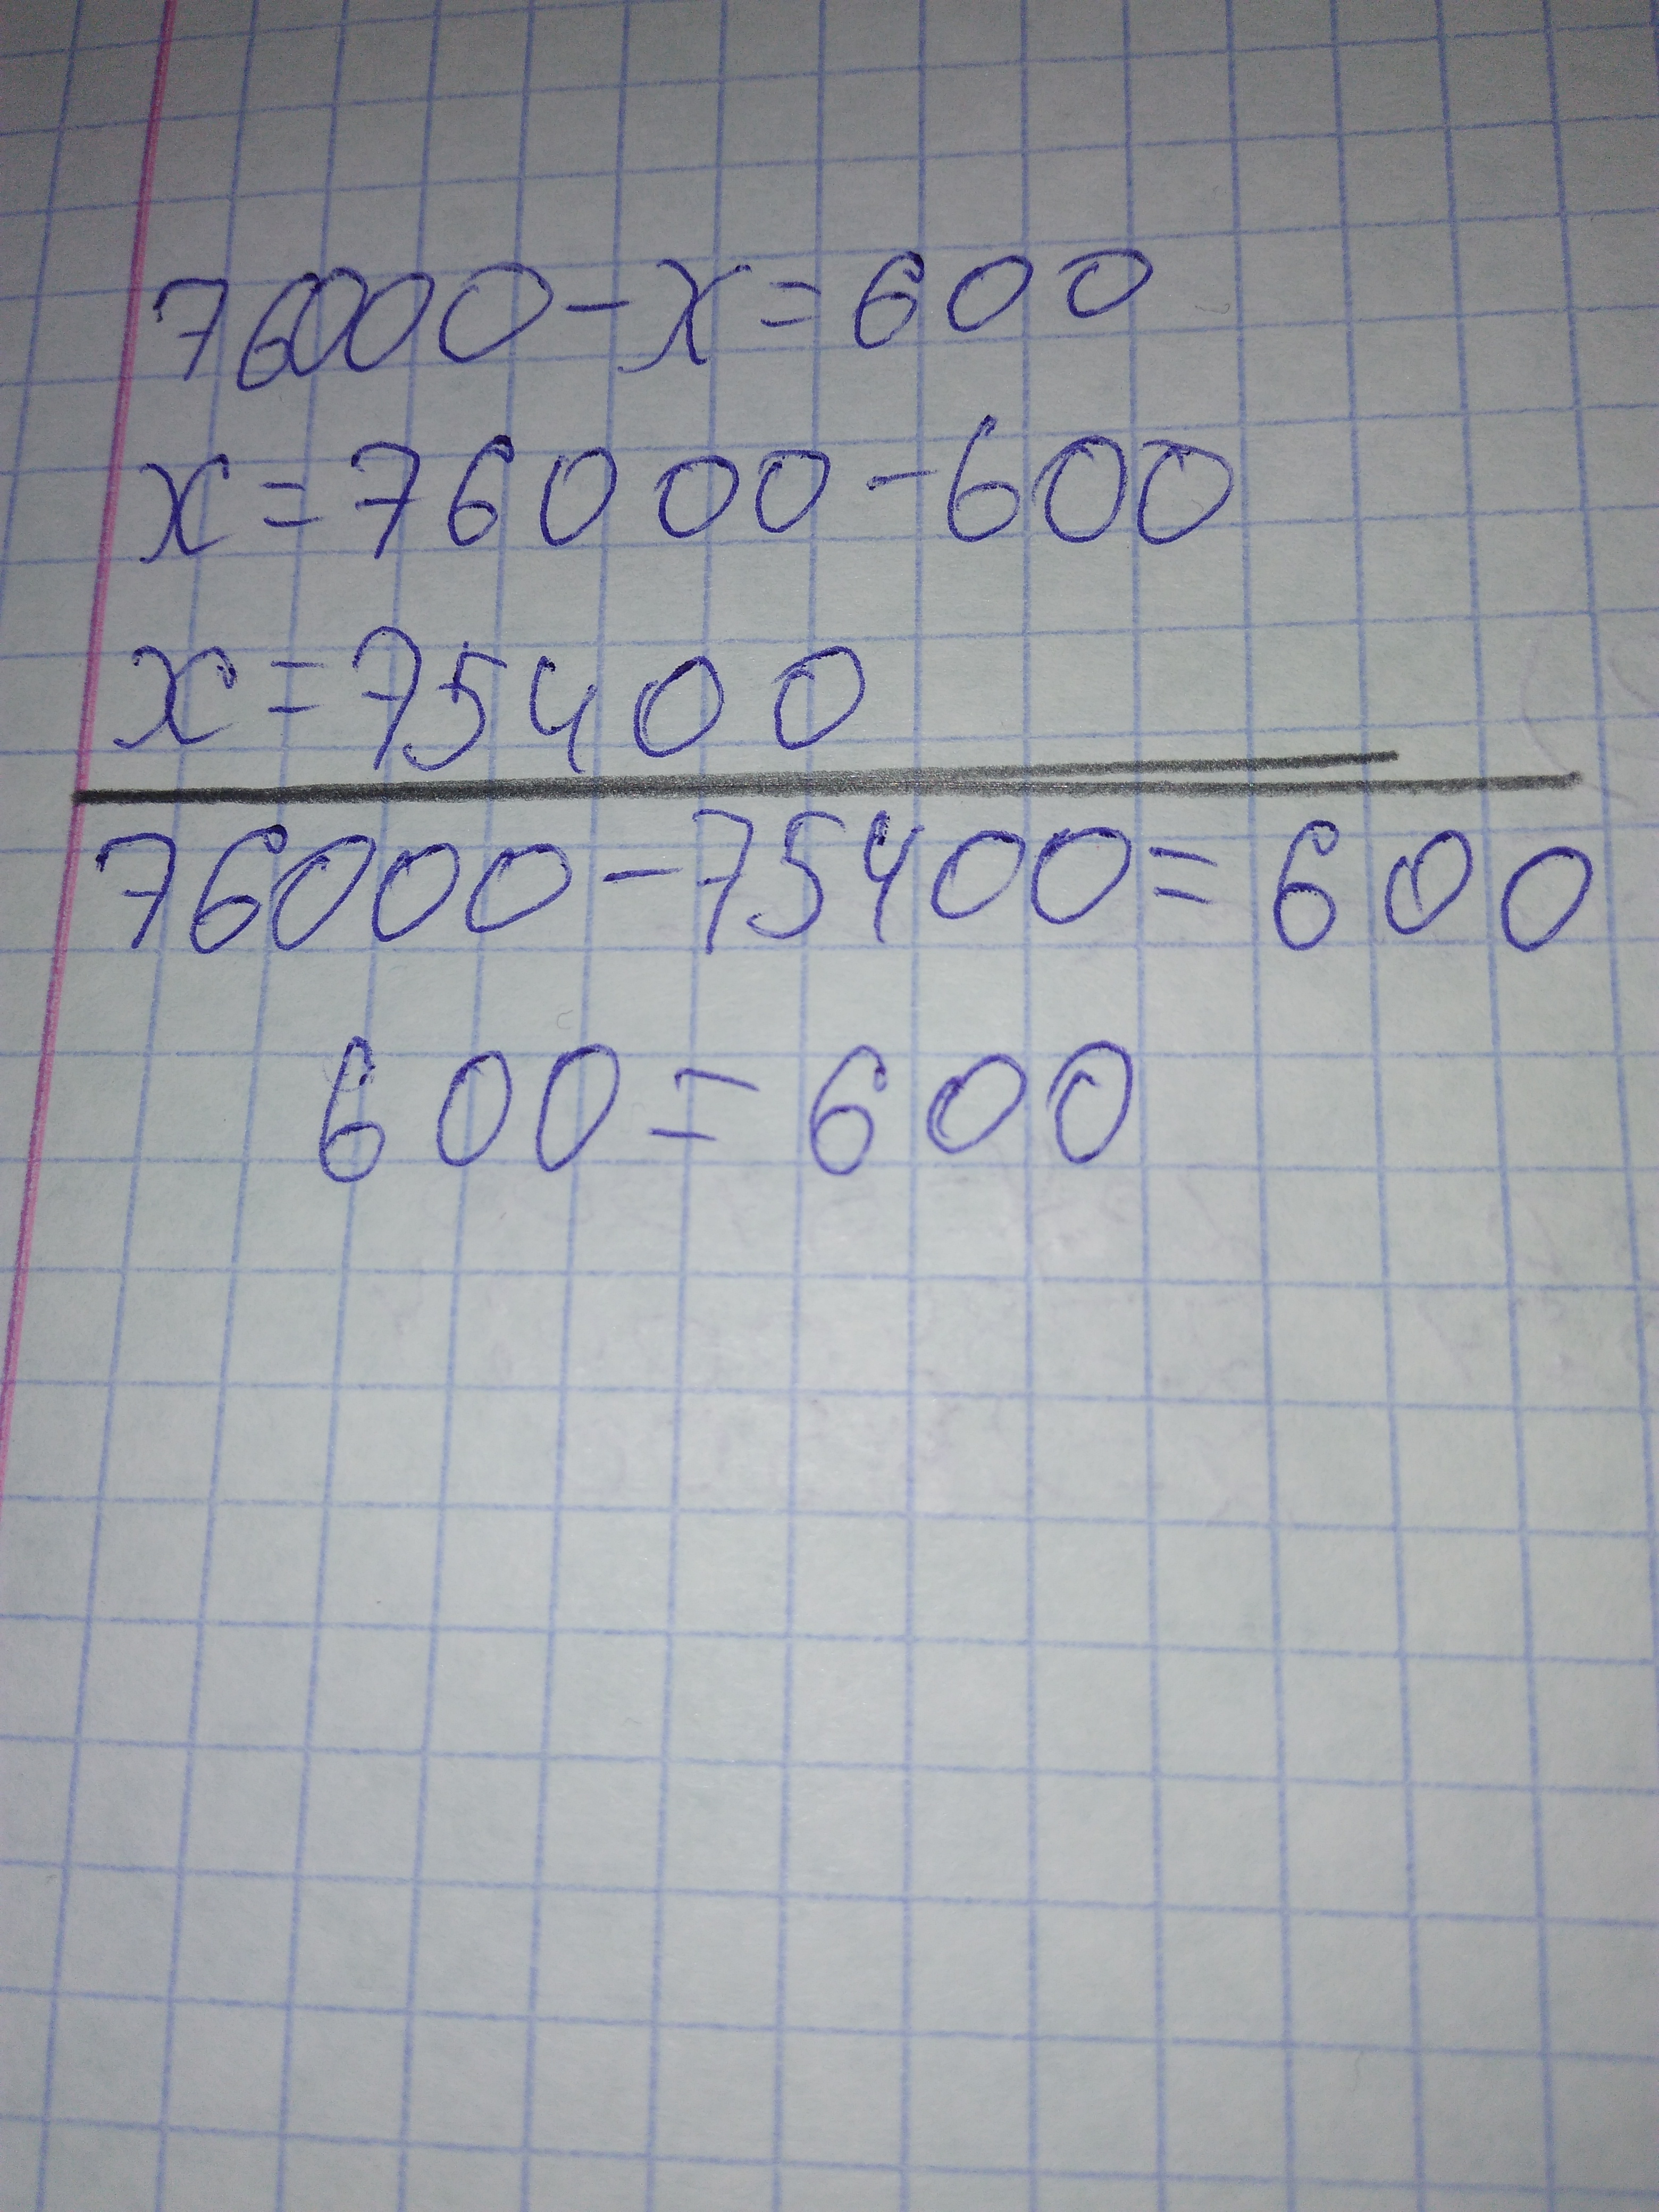 76000-x=600
x=76000-600
x=75400
76000-75400=600
600=600